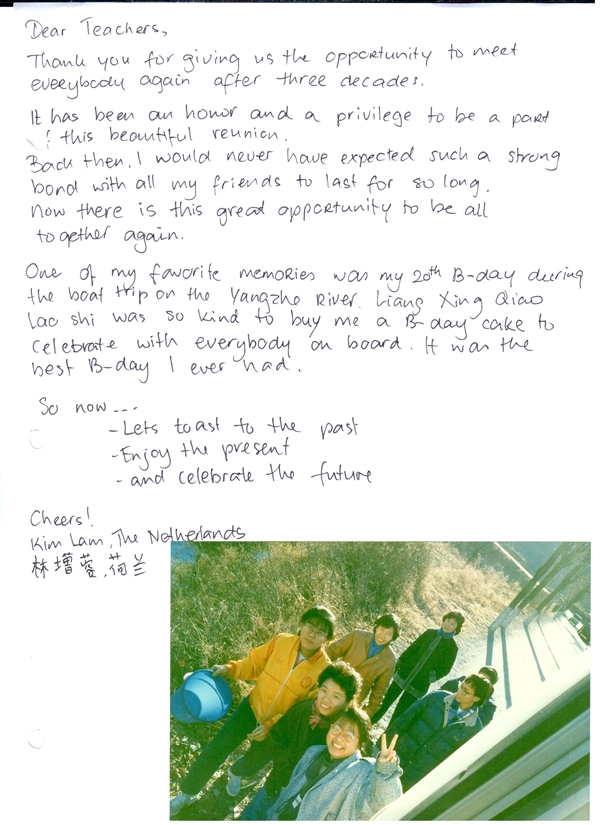 Dear Teachers,
Thank you for giving us the opportunity to meet
everybody again after three decades.
It has been an honor and a privilege to be a part
of this beautiful reunion.
Back then, I would never have expected such a strong
bond with all my friends to last for so long.
Now there is this great opportunity to be all
together again.
One of my favorite memories was my 20th B-day during
the boat trip on the Yangzhe River. Liang Xing Qiao
Lao shi was so kind to buy me a B-day cake to
celebrate with everybody on board. It was the
best B-day I ever had.
So now....
- Lets toast to the past
- Enjoy the present
- and celebrate the future
Cheers!
Kim Lam, The Netherlands
林增, 荷兰